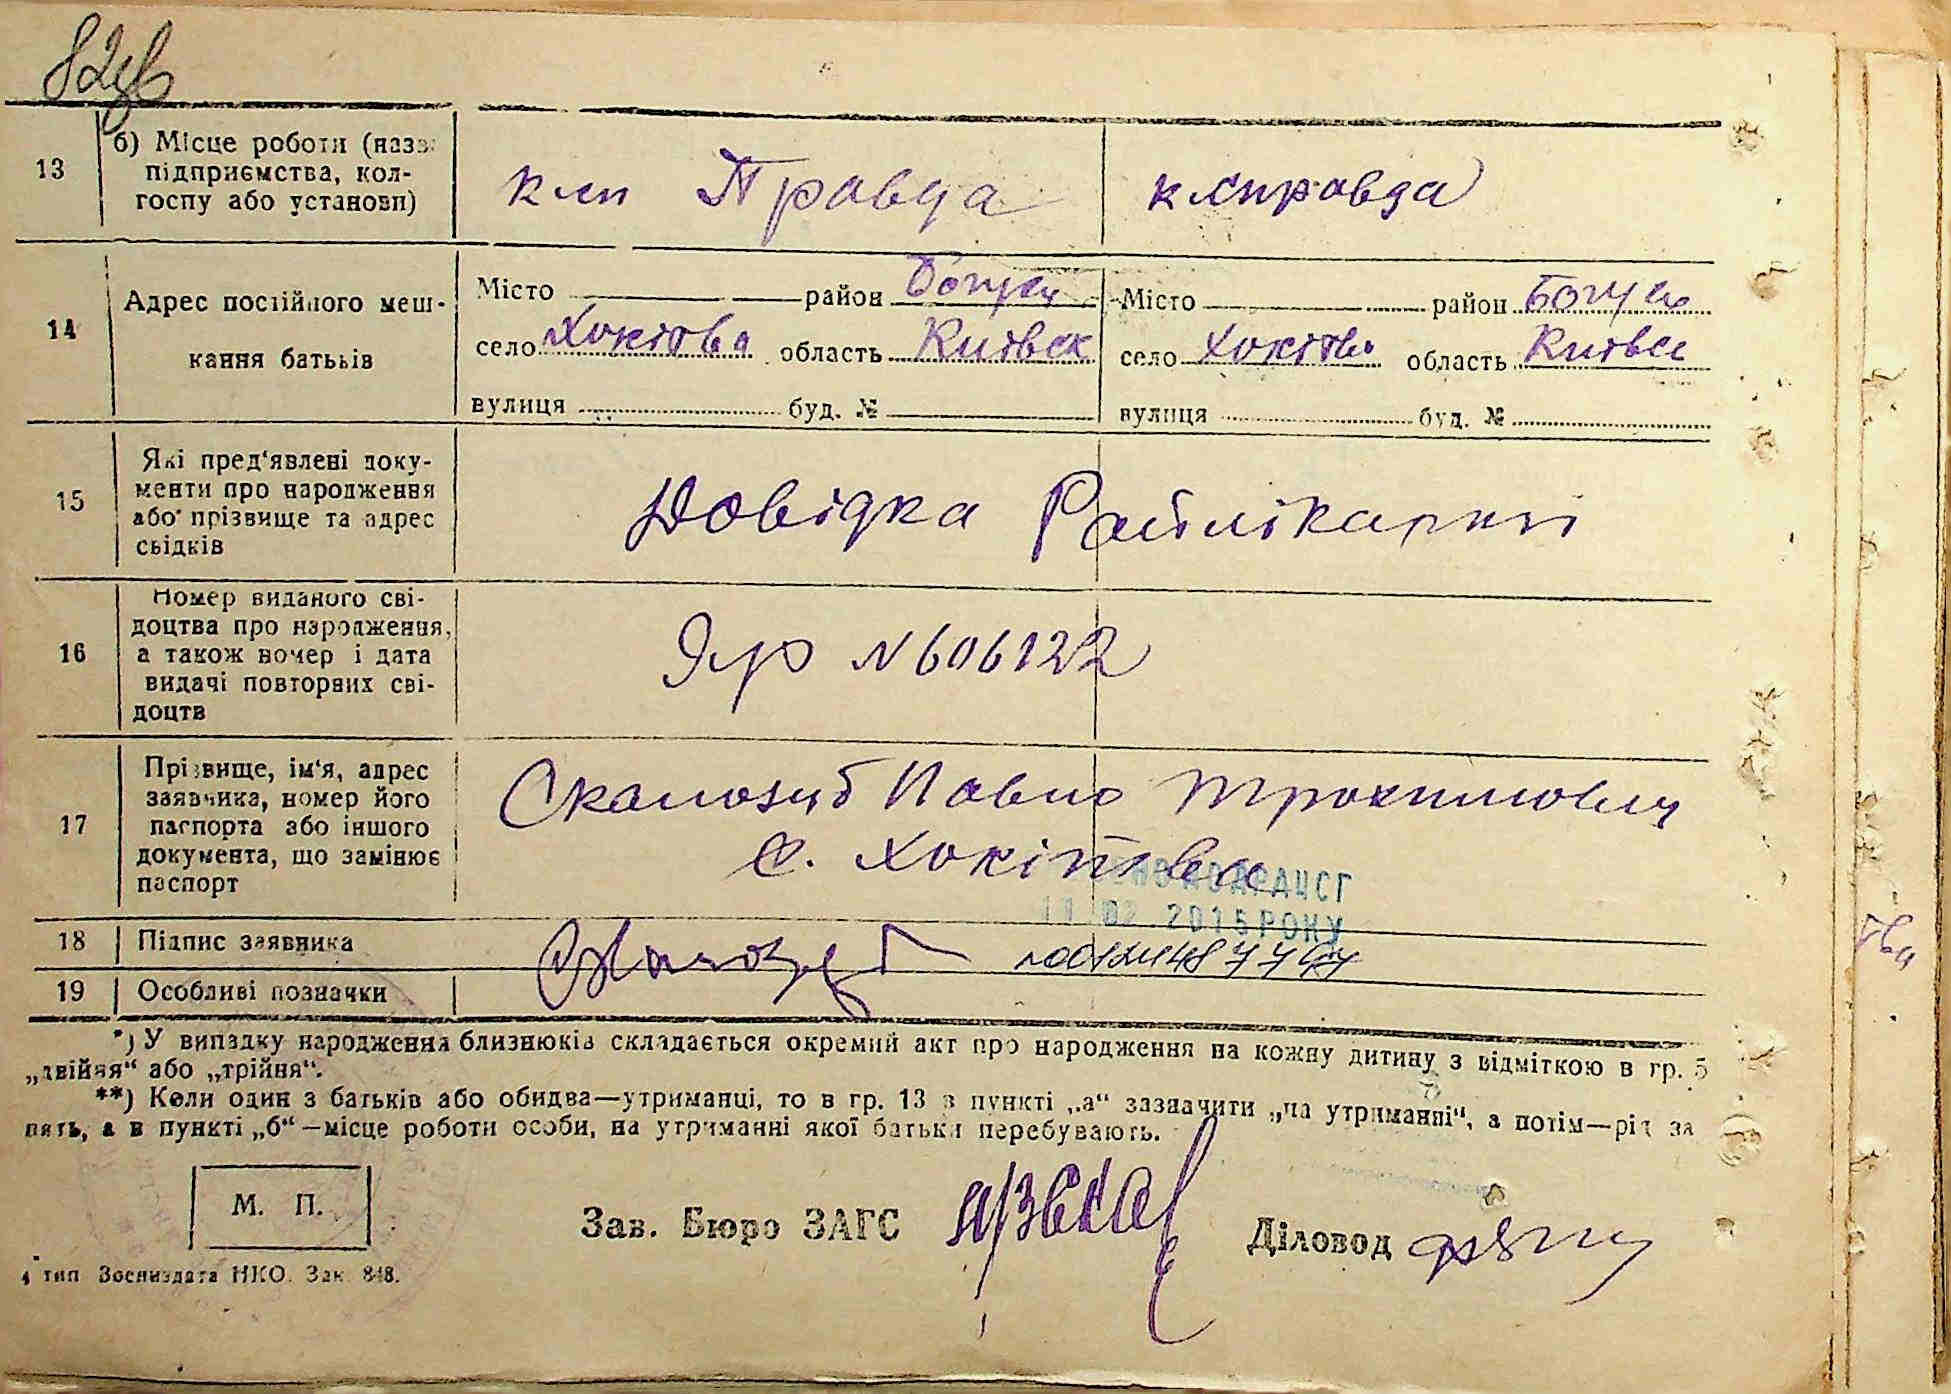 82зв
13
б) Місце роботи (назва
підприємства, кол-
госпу або установи)
клп Правда
клправда
14
Адрес постійного меш-
кання батьків
Місто район Богусл
село Хохітва область Київськ
вулиця буд. №
Місто район Богусл
село Хохітва область Київсь
вулиця буд. №
15
Які пред'явлені доку-
менти про народження
або прізвище та адрес
свідків
Довідка Райлікарні
16
Номер виданого сві-
доцтва про народження,
а також номер і дата
видачі повторних сві-
доцтв
№ 606122
17
Прізвище, ім'я, адрес
заявника, номер його
паспорта або іншого
документа, що замінює
паспорт
Скалозуб Павло Трохимович
с. Хохітва
ДРАЦСГ
11 02 2015 РОКУ
18
Підпис заявника
19
Особливі позначки
*) У випадку народження близнюків складається окремий акт про народження на кожну дитину з відміткою в гр. 5
„двійня“ або „трійня“.
**) Коли один з батьків або обидва—утриманці, то в гр. 13 в пункті „а“ зазначити „на утриманні“, а потім—рід за
нять, а в пункті „б“—місце роботи особи, на утриманні якої батьки перебувають.
М. П.
Зав. Бюро ЗАГС
Діловод
4 тип Воениздата НКО. Зак. 848.